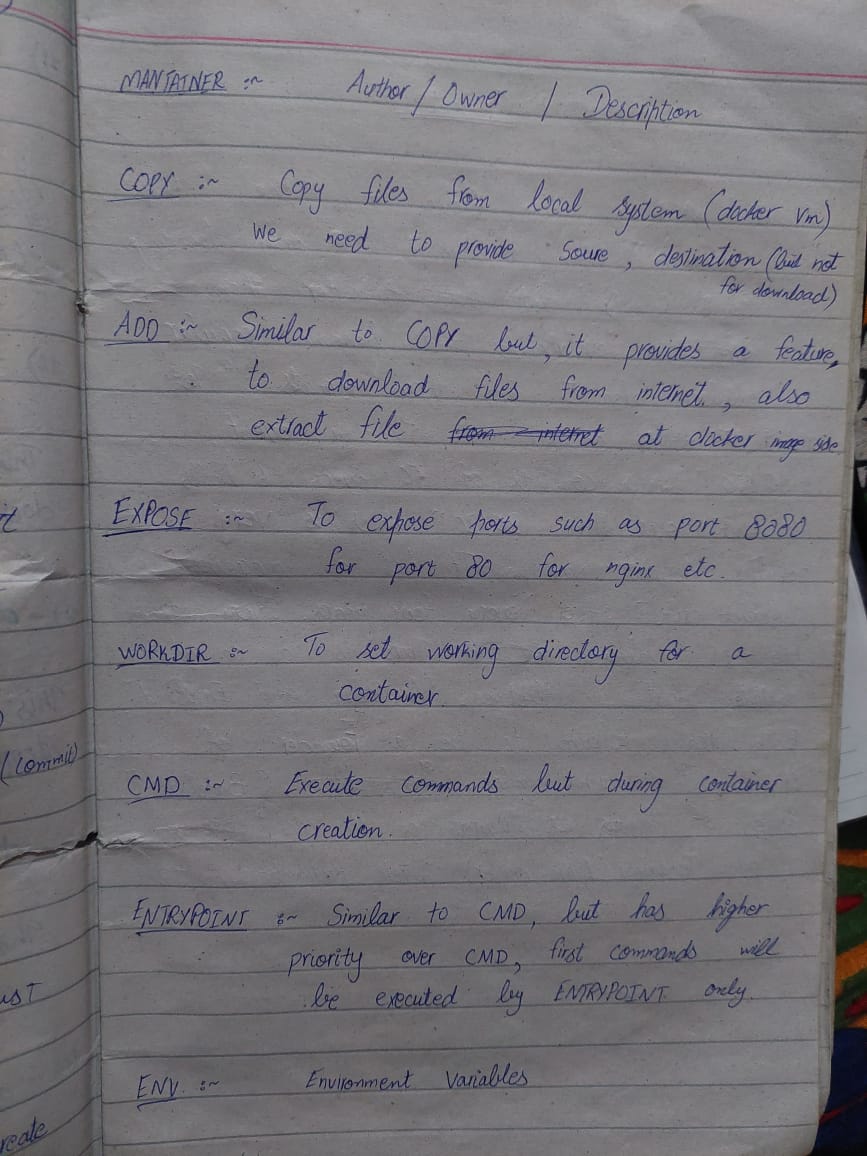 MANTAINER :~ Author / Owner / Description
COPY :~ Copy files from local system (docker vm)
we need to provide Soure , destination (but not
for download)
ADD :~ Similar to COPY but, it provides a feature,
to download files from internet. , also
extract file from internet at docker image side
EXPOSE :~ To expose ports such as port 8080
for port 80 for nginx etc.
WORKDIR :~ To set working directory for a
container.
CMD :~ Execute commands but during container
creation.
ENTRYPOINT :~ Similar to CMD, but has higher
priority over CMD, first commands will
be executed by ENTRYPOINT only.
ENV. :~ Environment Variables
(commit)